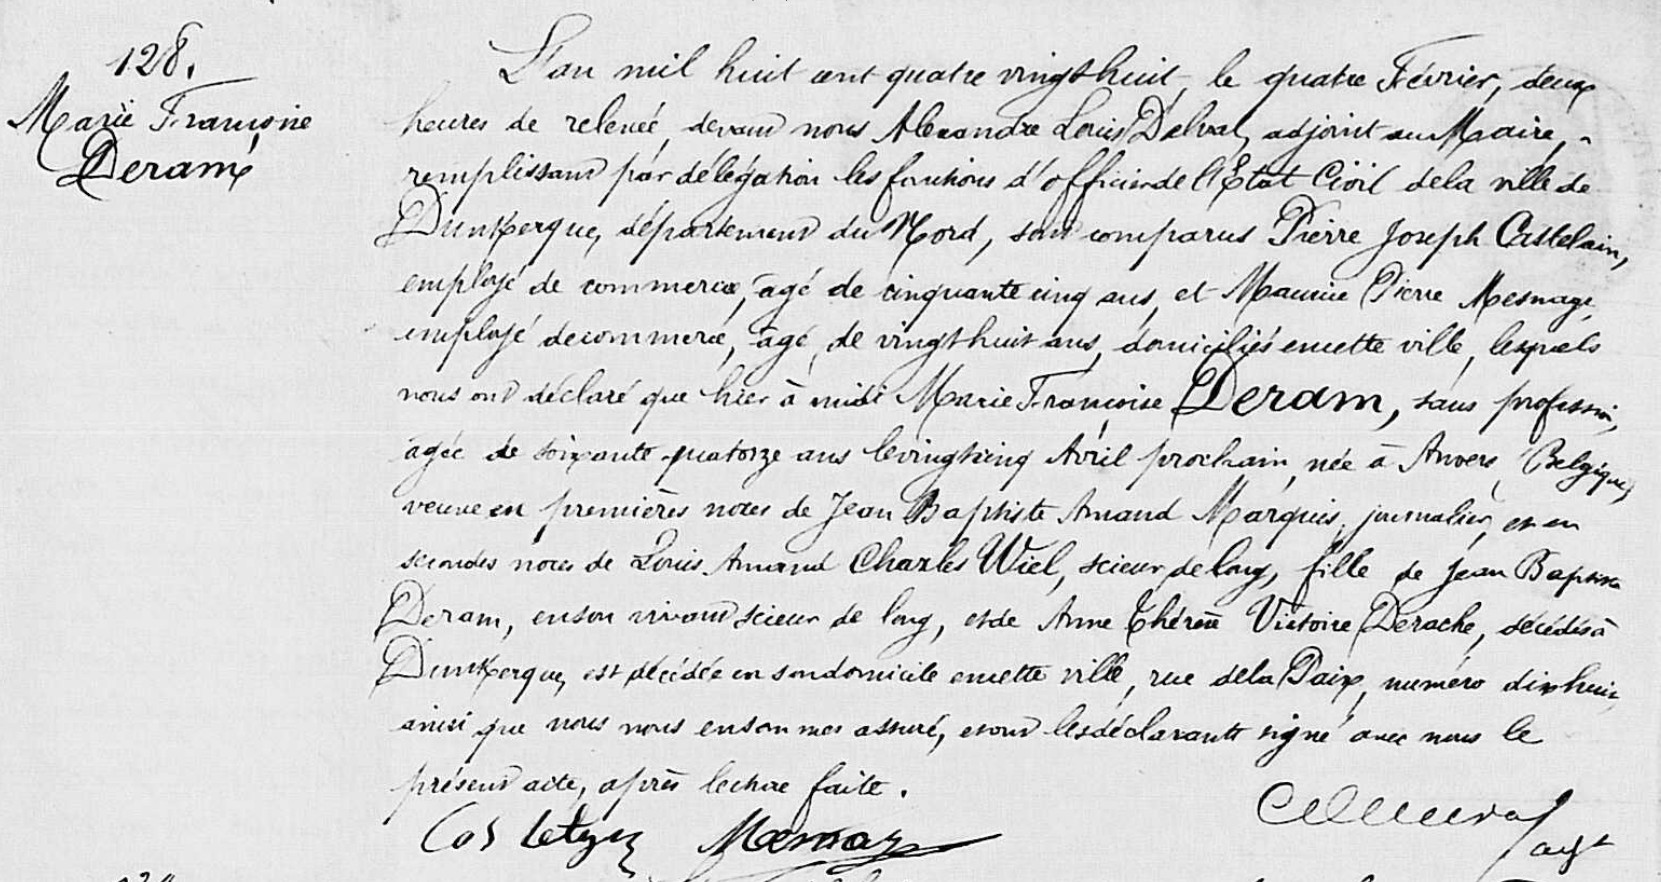 128.
Marie Françoise
Deram
L'an mil huit cent quatre vingt huit, le quatre Février, deux
heures de relevée, devant nous Alexandre Louis Delval, adjoint au Maire,
remplissant par délégation les fonctions d'officier de l'Etat Civil de la ville de
Dunkerque, département du Nord, sont comparus Pierre Joseph Castelain,
employé de commerce, âgé de cinquante cinq ans, et Maurice Pierre Mesnage,
employé de commerce, âgé de vingt huit ans, domiciliés en cette ville, lesquels
nous ont déclaré que hier à midi Marie Françoise Deram, sans profession,
âgée de soixante quatorze ans le vingt cinq Avril prochain, née à Anvers, (Belgique)
veuve en premières noces de Jean Baptiste Amand Marquis, journalier, et en
secondes noces de Louis Amand Charles Wiel, scieur de long, fille de Jean Baptiste
Deram, en son vivant scieur de long, et de Anne Thérèse Victoire Derache, décédés à
Dunkerque, est décédée en son domicile en cette ville, rue de la Paix, numéro dix huit,
ainsi que nous nous en sommes assuré, et ont les déclarants signé avec nous le
présent acte, après lecture faite.